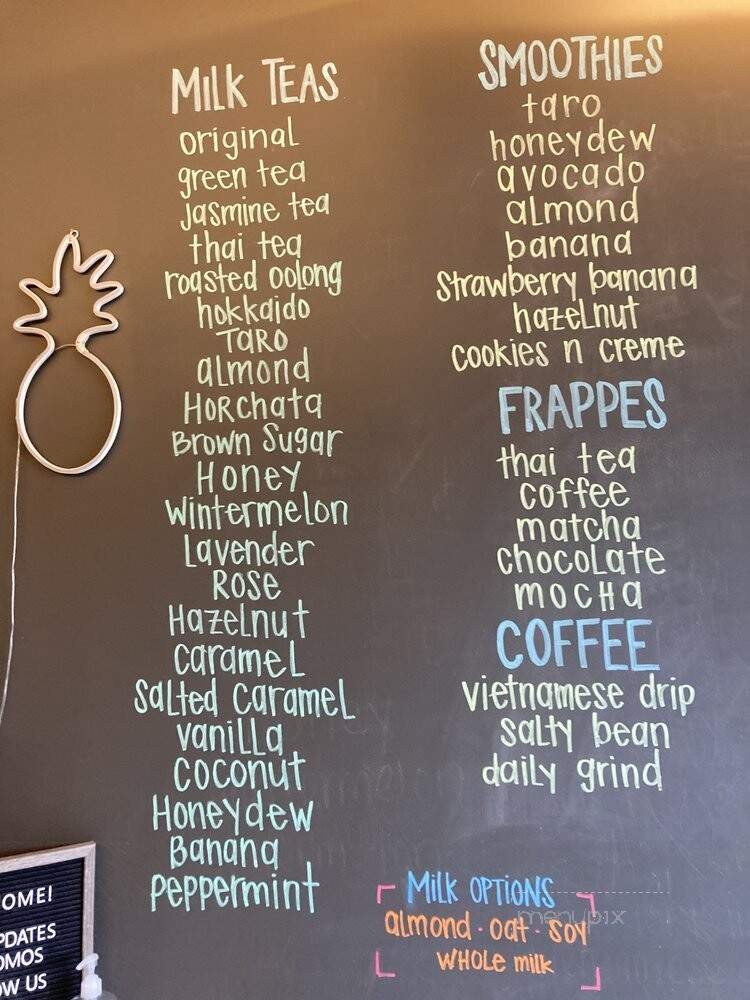 MILK TEAS
original
green tea
Jasmine tea
thai tea
roasted oolong
hokkaido
TARO
almond
HORCHata
Brown Sugar
Honey
Wintermelon
Lavender
ROSE
HazeLnut
carameL
SaLted carameL
vaniLLa
coconut
Honeydew
Banana
Peppermint
SMOOTHIES
taro
honeydew
avocado
aLmond
banana
Strawberry banana
hazeLnut
cookies n creme
FRAPPES
thai tea
coffee
matcha
chocoLate
mocHa
COFFEE
vietnamese drip
saLty bean
daiLy grind
MiLK OPTiONS
almond · oat · soy
WHOLe miLk
menupix
OME!
PDATES
OMOS
OW US